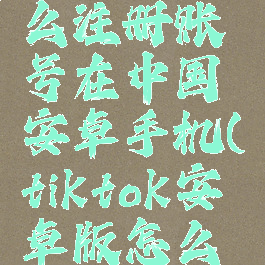 么注册账
号在中国
安卓手机(
tiktok安
卓版怎么